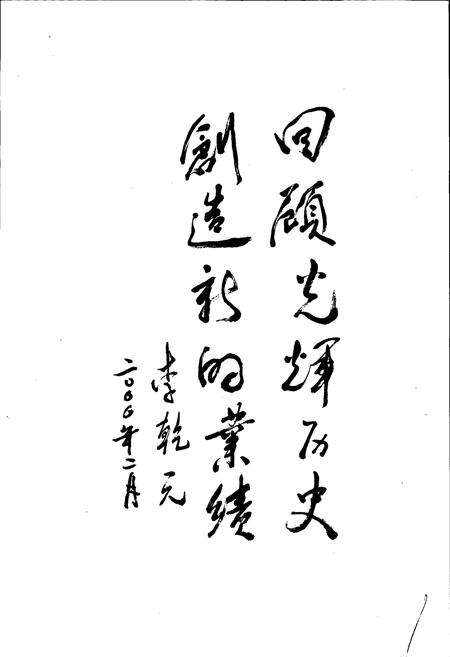 回顾光輝历史
創造新的業績
李乾元
二〇〇〇年二月